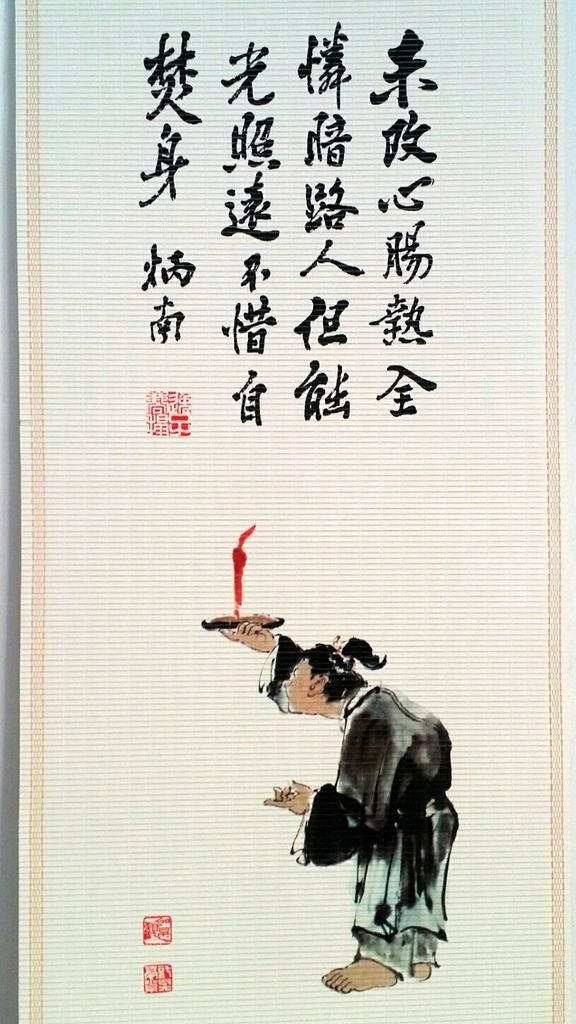 未改心腸熱全
憐暗路人但能
光照遠不惜自
焚身 炳南